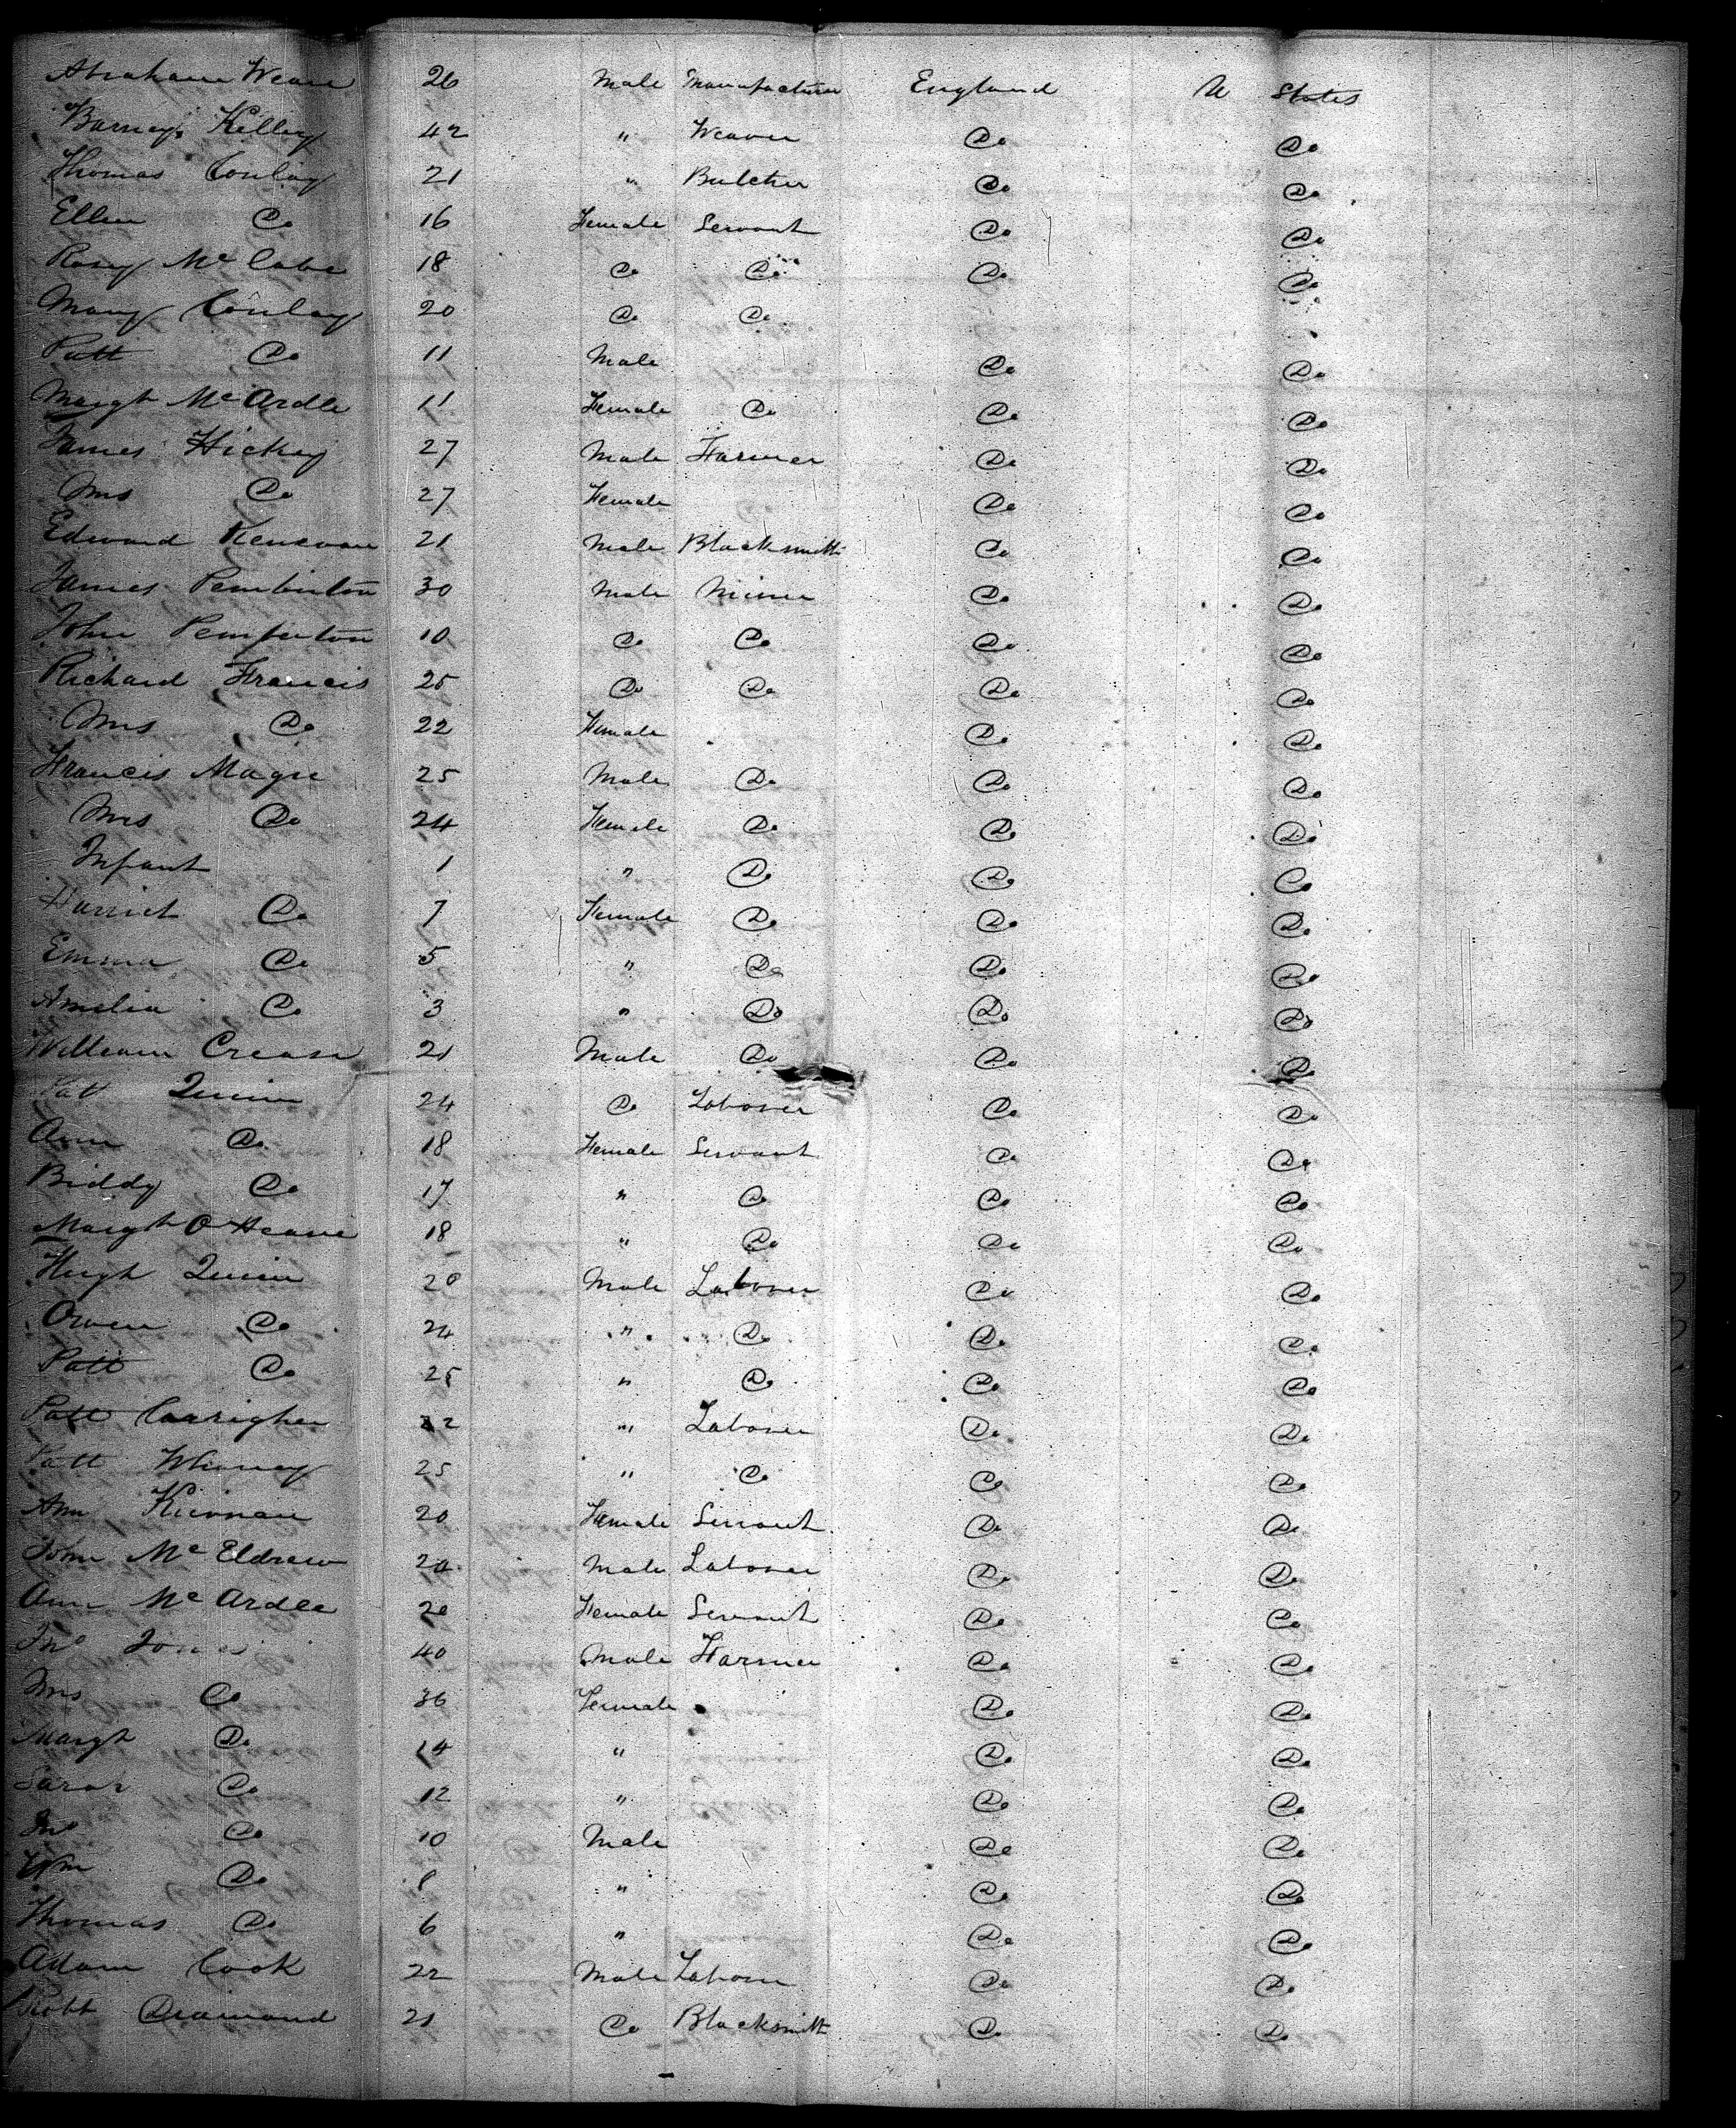 Abraham Weare 26 Male Manufacturer England U States
Barney Kelley 42 " Weaver Do Do
Thomas Conlay 21 " Butcher Do Do
Ellen Do 16 Female Servant Do Do
Rosey Mc Cabe 18 Do Do Do Do
Mary Conlay 20 Do Do
Patt Do 11 Male Do Do
Margt Mc Ardle 11 Female Do Do Do
James Hickey 27 Male Farmer Do Do
Mrs Do 27 Female Do Do
Edward 21 Male Blacksmith Do Do
James Pemberton 30 Male Miner Do Do
John Pemberton 10 Do Do Do Do
Richard Francis 25 Do Do Do Do
Mrs Do 22 Female Do Do
Francis Magee 25 Male Do Do Do
Mrs Do 24 Female Do Do Do
Infant 1 " Do Do Do
Harriet Do 7 Female Do Do Do
Emma Do 5 " Do Do Do
Amelia Do 3 " Do Do Do
William Crease 21 Male Do Do Do
Patt Quinn 24 Do Laborer Do Do
Ann Do 18 Female Servant Do Do
Biddy Do 17 " Do Do Do
Margt O Heare 18 " Do Do Do
Hugh Quinn 20 Male Laborer Do Do
Owen Do 24 " Do Do Do
Patt Do 25 " Do Do Do
Patt Carrigher 22 " Laborer Do Do
Patt 25 " Do Do Do
Ann Kiernan 20 Female Servant Do Do
John Mc Eldrew 20 Male Laborer Do Do
Ann Mc Ardle 20 Female Servant Do Do
Jno Jones 40 Male Farmer Do Do
Mrs Do 36 Female Do Do
Margt Do 14 " Do Do
Sarar Do 12 " Do Do
Jno Do 10 Male Do Do
Wm Do 8 " Do Do
Thomas Do 6 " Do Do
Adam Cook 22 Male Laborer Do Do
Robt Diamond 21 Do Blacksmith Do Do